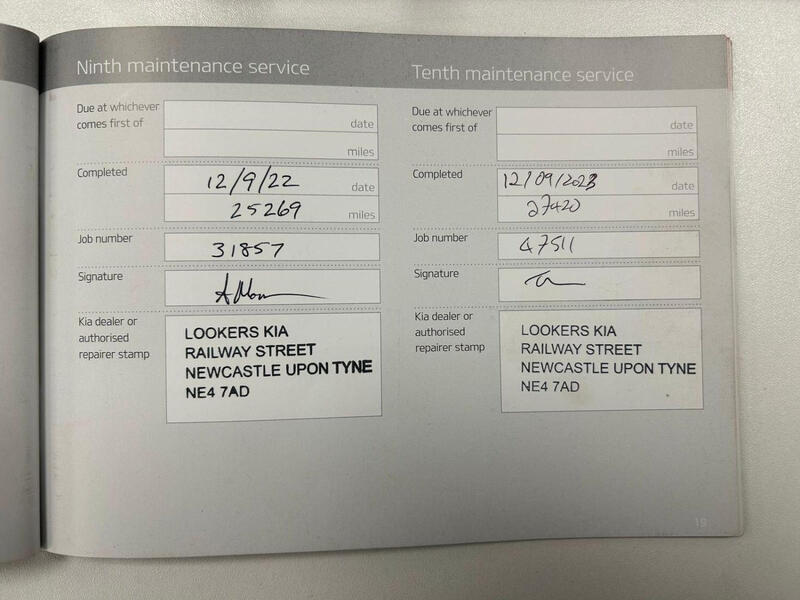 Ninth maintenance service
Due at whichever
comes first of
date
miles
Completed
12/9/22 date
25269 miles
Job number
31857
Signature
Kia dealer or
authorised
repairer stamp
LOOKERS KIA
RAILWAY STREET
NEWCASTLE UPON TYNE
NE4 7AD
Tenth maintenance service
Due at whichever
comes first of
date
miles
Completed
12/09/2023 date
27420 miles
Job number
47511
Signature
Kia dealer or
authorised
repairer stamp
LOOKERS KIA
RAILWAY STREET
NEWCASTLE UPON TYNE
NE4 7AD
19